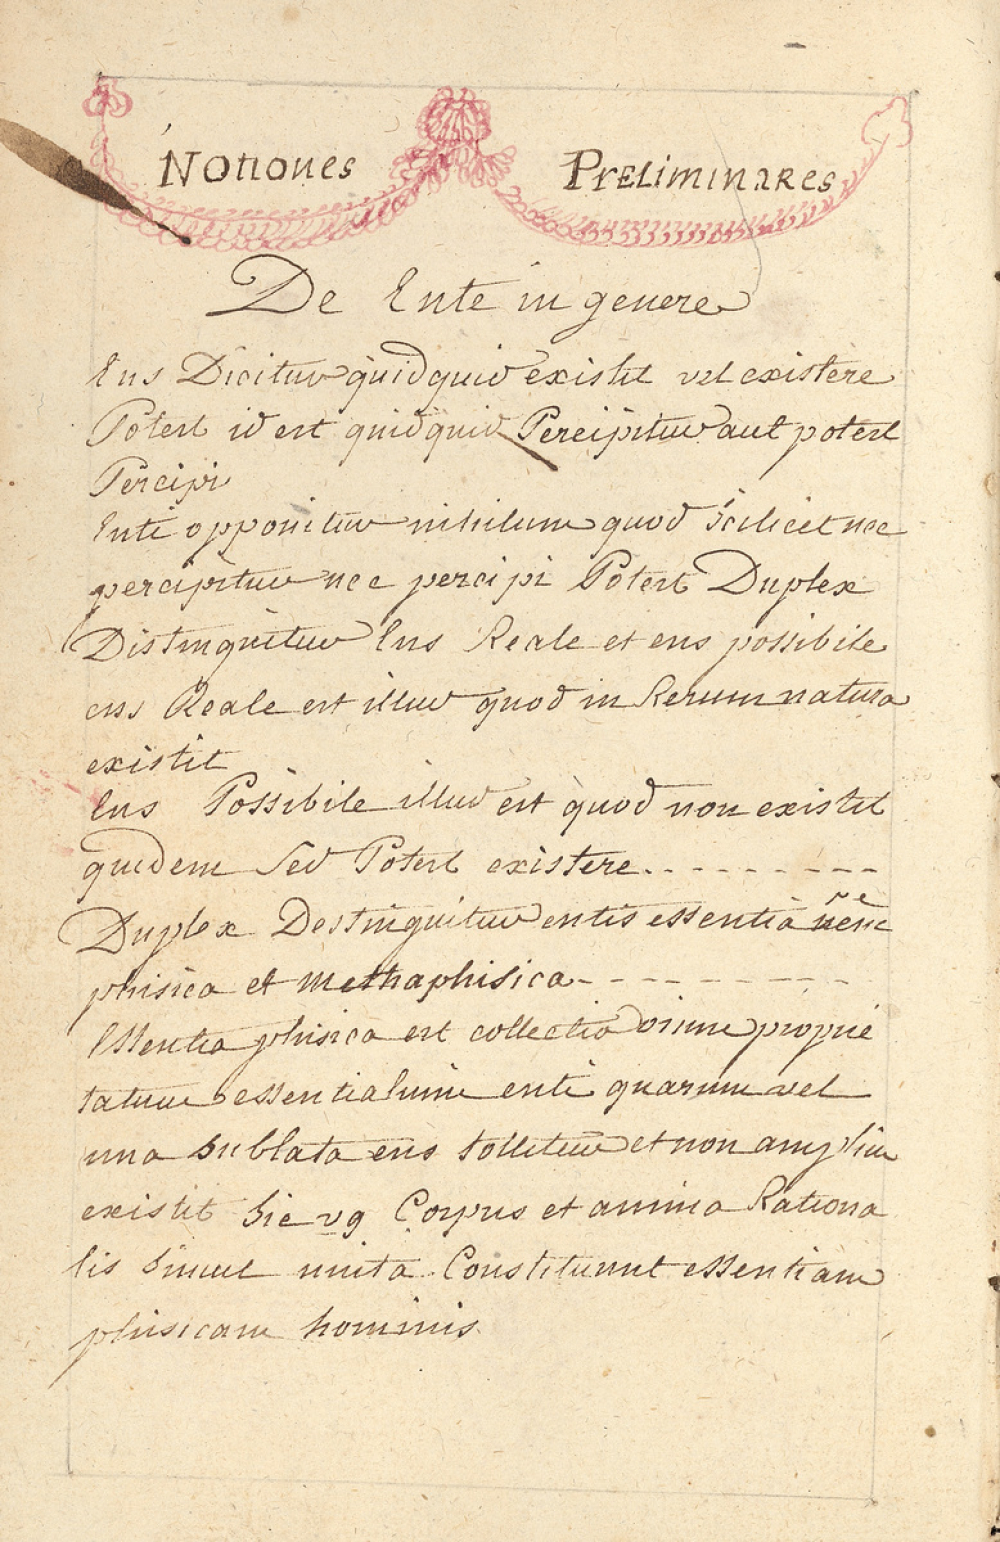 Notiones Preliminares
De Ente in genere
Ens Dicitur quidquid existit vel existere
Potest id est quidquid Percipitur aut potest
Percipi
Enti opponitur nihilum quod scilicet nec
percipitur nec percipi Potest Duplex
Distinguitur Ens Reale et ens possibile
ens Reale est illud quod in Rerum natura
existit
Ens Possibile illud est quod non existit
quidem sed Potest existere. - - - - - - - -
Duplex Destinguitur entis essentia
phisica et methaphisica - - - - - - - -
Essentia phisica est collectio proprie
tatum essentialium enti quarum vel
una sublata ens tollitur et non amplius
existit sic vg Corpus et anima Rationa
lis simul unita Constituunt essentiam
phisicam hominis